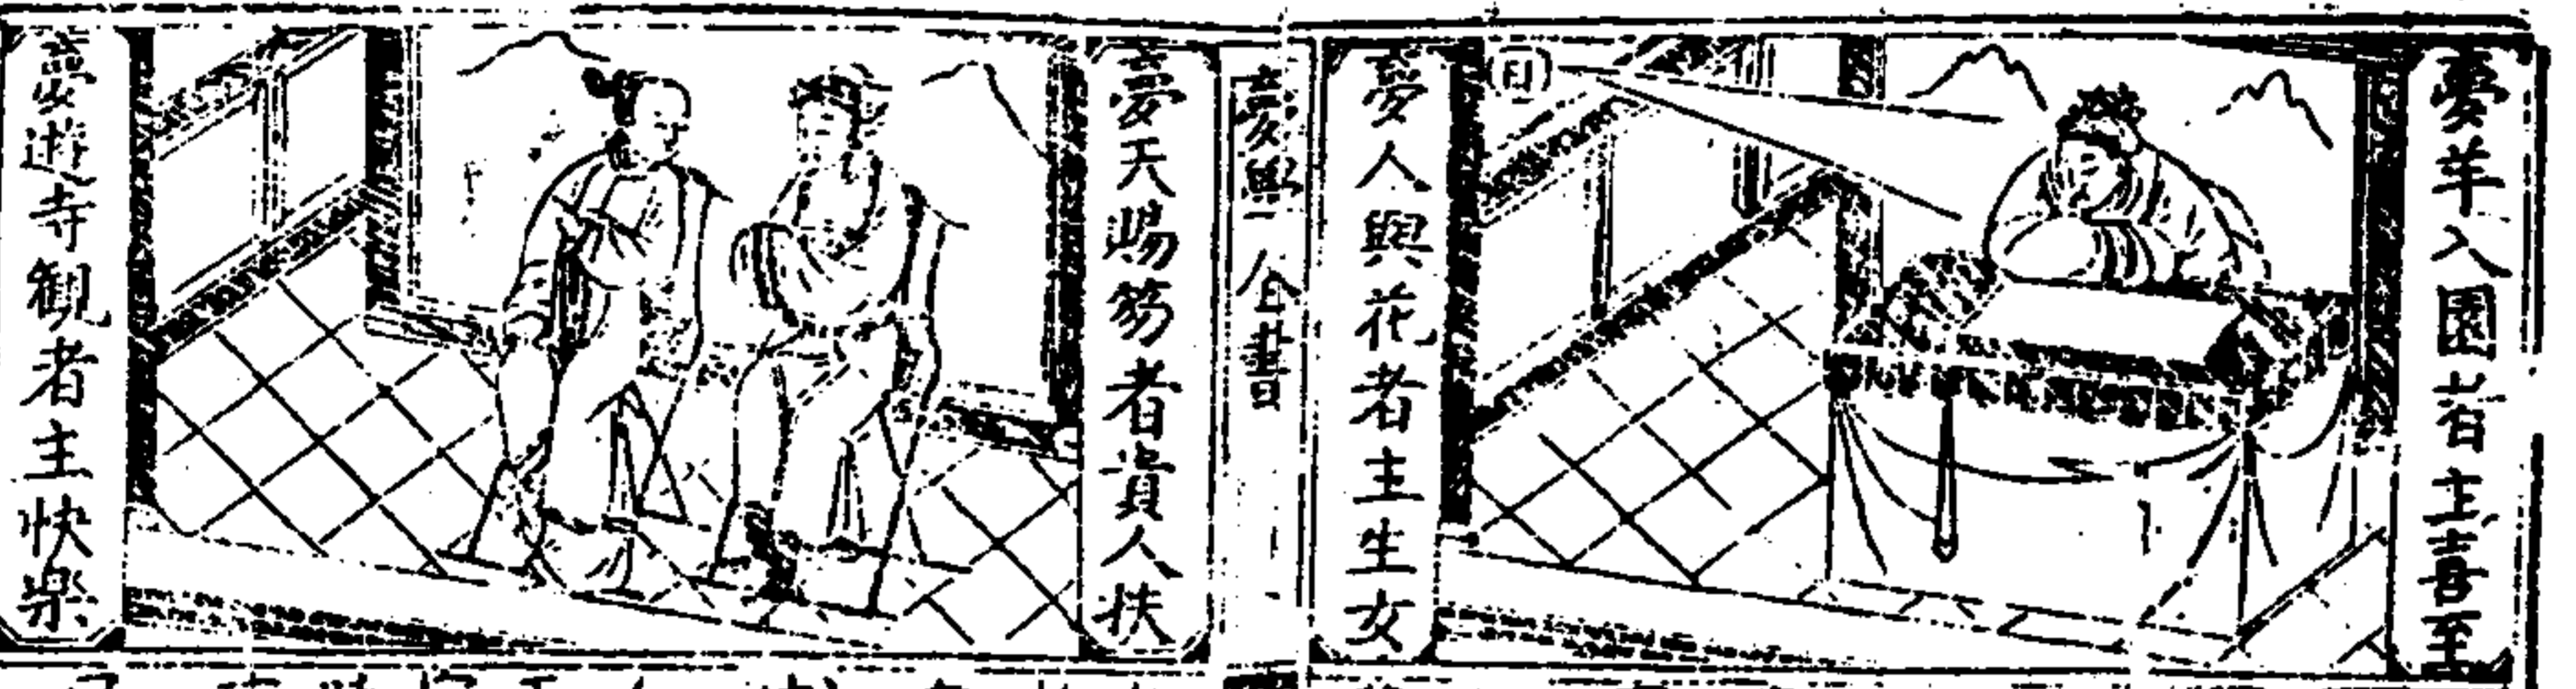 夢羊入園者主喜至
夢人與花者主生女
全書
夢天賜笏者貴人扶
夢遊寺観者主快楽